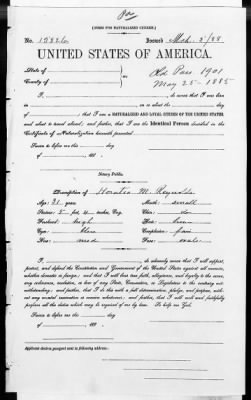 [FORM FOR NATURALIZED CITIZEN.]
No. Issued Mch. 2/88
UNITED STATES OF AMERICA.
State of
County of
Old Pass 1901
May 25- 1885
I, do swear that I was born
in on or about the day
of ; that I am a NATURALIZED AND LOYAL CITIZEN OF THE UNITED STATES,
and about to travel abroad; and further, that I am the Identical Person described in the
Certificate of Naturalization herewith presented.
Sworn to before me this day
of 188 .
Notary Public.
Description of Horatio M. Reynolds
Age: 31 years Mouth: small
Stature: 5 feet, inches, Eng. Chin: do
Forehead: high Hair:
Eyes: blue Complexion: fair
Nose: med Face: oval
I, do solemnly swear that I will support,
protect, and defend the Constitution and Government of the United States against all enemies,
whether domestic or foreign; and that I will bear true faith, allegiance, and loyalty to the same,
any ordinance, resolution, or law of any State, Convention, or Legislature to the contrary not-
withstanding; and further, that I do this with a full determination, pledge, and purpose, with-
out any mental reservation or evasion whatsoever; and further, that I will well and faithfully perform
all the duties which may be required of me by law. So help me God.
Sworn to before me this day
of 188 .
Applicant desires passport sent to following address: